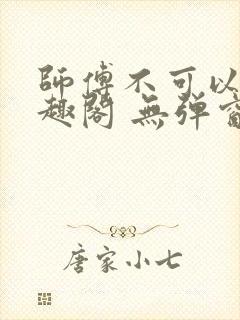 師傅不可以
趣閣 無弹
唐家小七